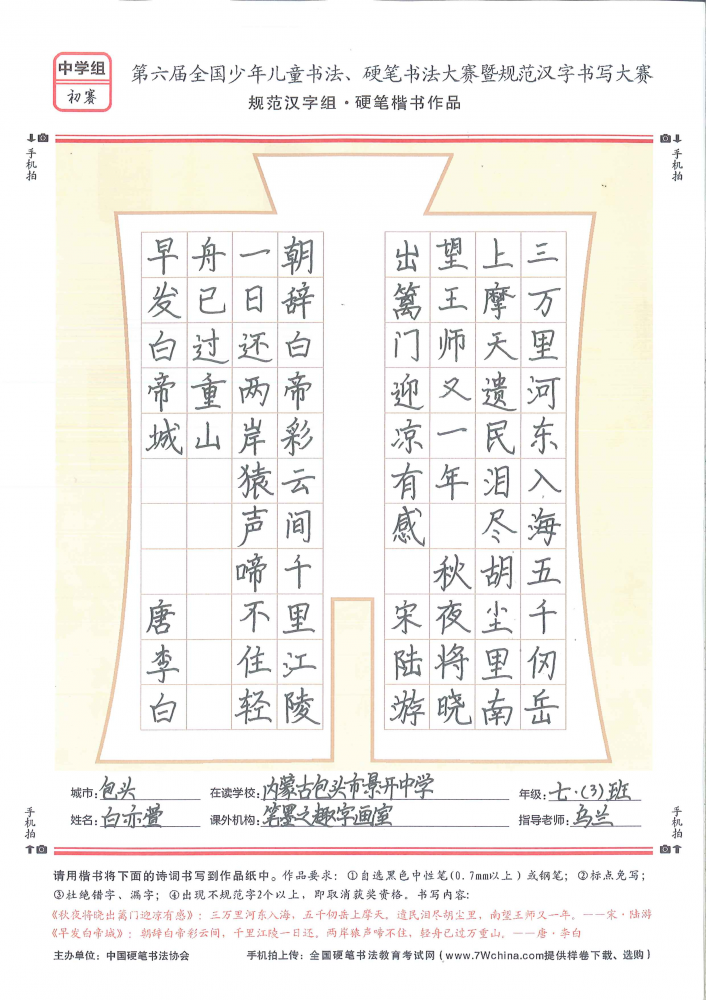 中学组
初赛
第六届全国少年儿童书法、硬笔书法大赛暨规范汉字书写大赛
规范汉字组·硬笔楷书作品
手机拍
手机拍
三万里河东入海五千仞岳
上摩天遗民泪尽胡尘里南
望王师又一年 秋夜将晓
出篱门迎凉有感 宋陆游
朝辞白帝彩云间千里江陵
一日还两岸猿声啼不住轻
舟已过重山
早发白帝城 唐李白
城市:包头 在读学校:内蒙古包头市景开中学 年级:七·(3)班
姓名:白亦 课外机构:笔墨之趣字画室 指导老师:乌兰
手机拍
手机拍
请用楷书将下面的诗词书写到作品纸中。作品要求：①自选黑色中性笔(0.7mm以上)或钢笔；②标点免写；
③杜绝错字、漏字；④出现不规范字2个以上，即取消获奖资格。书写内容：
《秋夜将晓出篱门迎凉有感》：三万里河东入海，五千仞岳上摩天。遗民泪尽胡尘里，南望王师又一年。——宋·陆游
《早发白帝城》：朝辞白帝彩云间，千里江陵一日还。两岸猿声啼不住，轻舟已过万重山。——唐·李白
主办单位：中国硬笔书法协会 手机拍上传：全国硬笔书法教育考试网(www.7Wchina.com提供样卷下载、选购)